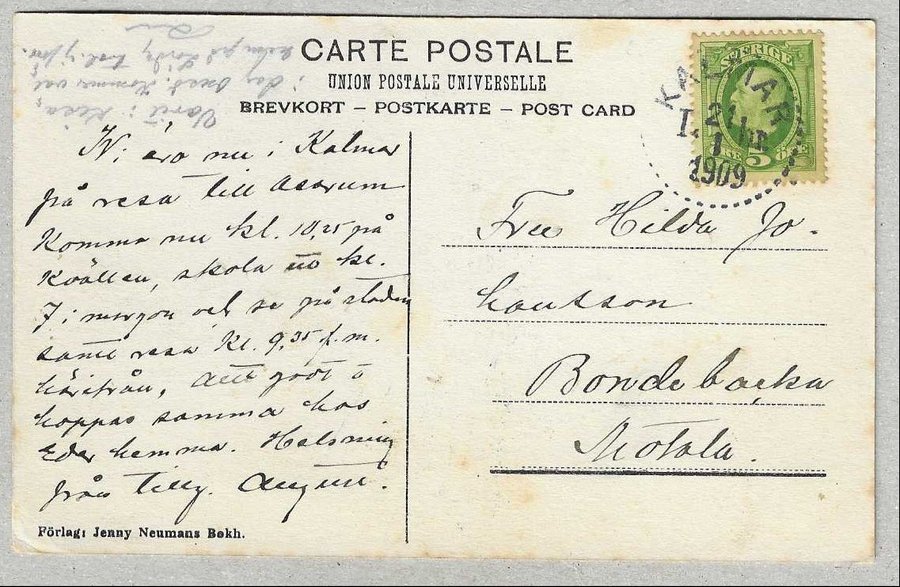 CARTE POSTALE
UNION POSTALE UNIVERSELLE
BREVKORT – POSTKARTE – POST CARD
SVERIGE
5 ÖRE
KALMAR
21
1
1909
Vi äro nu i Kalmar
på resa till Asarum
Komma nu kl. 10,25 på
Kvällen, skola kl.
7 i morgon och se på staden
samt resa Kl. 9,35 f.m.
härifrån, Allt godt o
hoppas samma hos
Eder hemma. Helsning
från Tilly. August.
Fru Hilda Jo-
hansson
Bondebacka
Motala.
Förlag: Jenny Neumans Bokh.